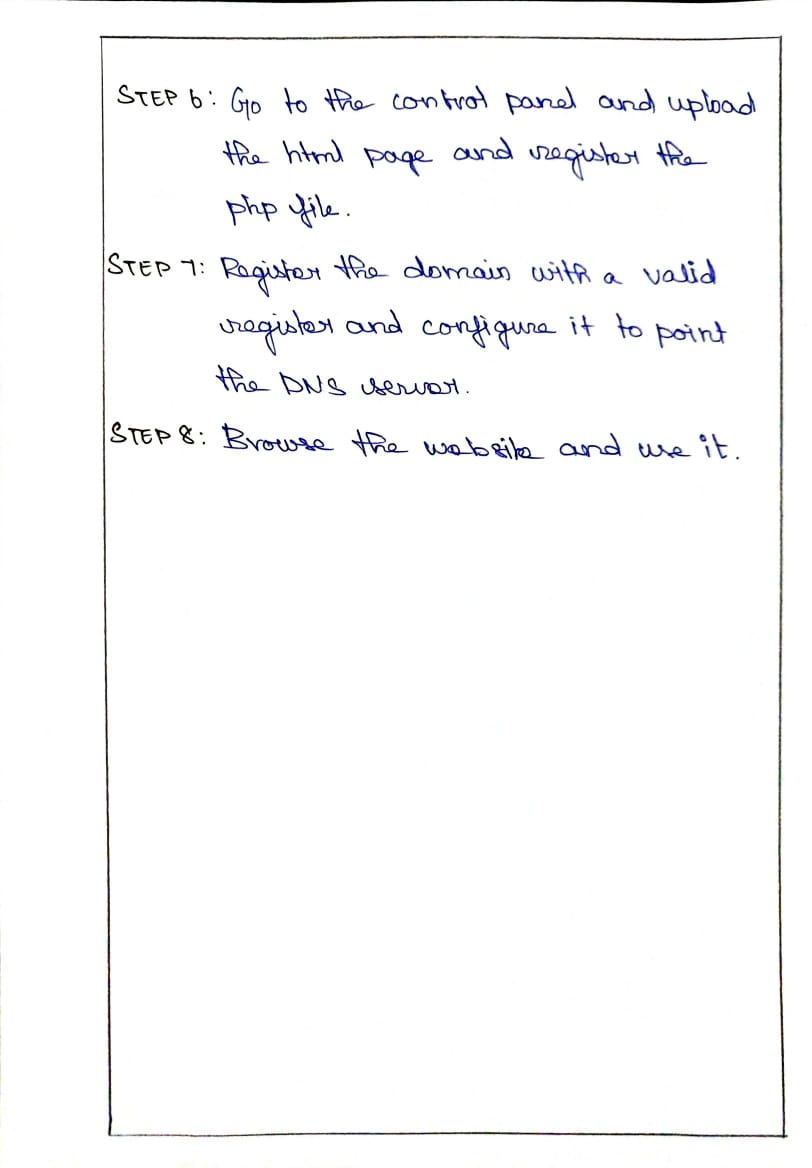 STEP 6: Go to the control panel and upload
the html page and register the
php file.
STEP 7: Register the domain with a valid
register and configure it to point
the DNS server.
STEP 8: Browse the website and use it.